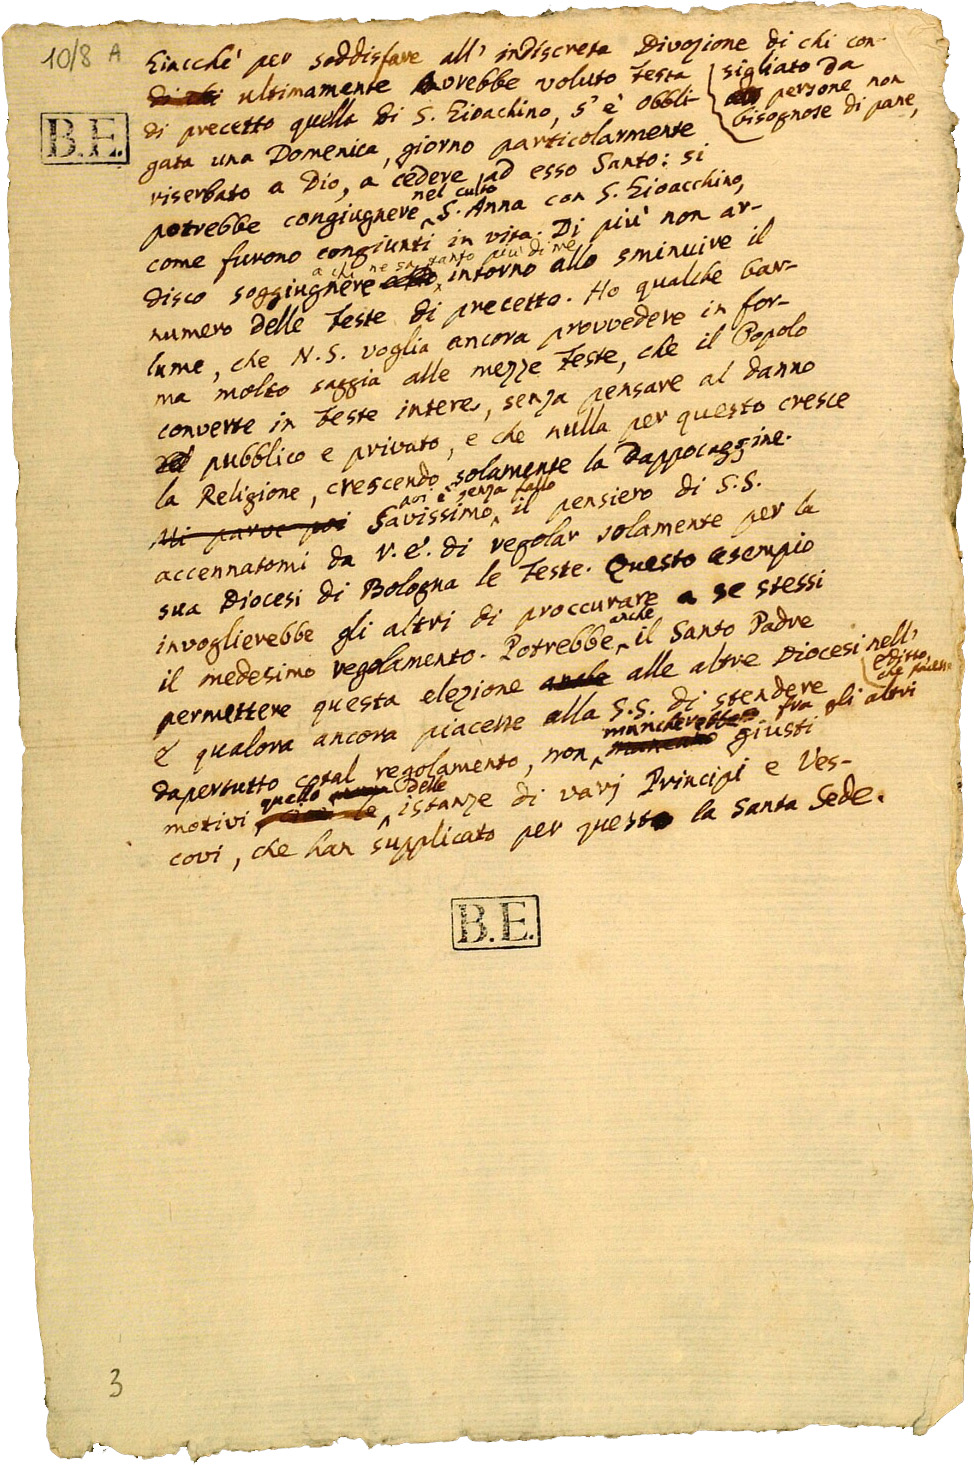 10/8 A
B.E.
Giacché per soddisfare all' indiscreta Divozione di chi con-
sigliato da
persone non
bisognose di pane,
di chi ultimamente avrebbe voluto Festa
di precetto quella di S. Gioachino, s' è obbli-
gata una Domenica, giorno particolarmente
riserbato a Dio, a cedere ad esso Santo: si
nel culto
potrebbe congiugnere S. Anna con S. Gioacchino,
come furono congiunti in vita. Di più non ar-
a chi ne sa tanto più di me
disco soggiugnere intorno allo sminuire il
numero delle Feste di precetto. Ho qualche bar-
lume, che N.S. voglia ancora provvedere in for-
ma molto saggia alle mezze Feste, che il Popolo
converte in Feste intere, senza pensare al danno
pubblico e privato, e che nulla per questo cresce
la Religione, crescendo solamente la dappocaggine.
poi è senza fallo
Mi parve poi Savissimo il pensiero di S.S.
accennatomi da V. E. di regolar solamente per la
sua Diocesi di Bologna le Feste. Questo esempio
invoglierebbe gli altri di proccurare a se stessi
il medesimo regolamento. Potrebbe anche il Santo Padre
permettere questa elezione anche alle altre Diocesi nell'
Editto,
E qualora ancora piacesse alla S.S. di stendere
mancherebbe
dapertutto cotal regolamento, non mancano fra gli altri giusti
quello delle
motivi le istanze di varj Principi e Ves-
covi, che han supplicato per questo la Santa Sede.
B.E.
3